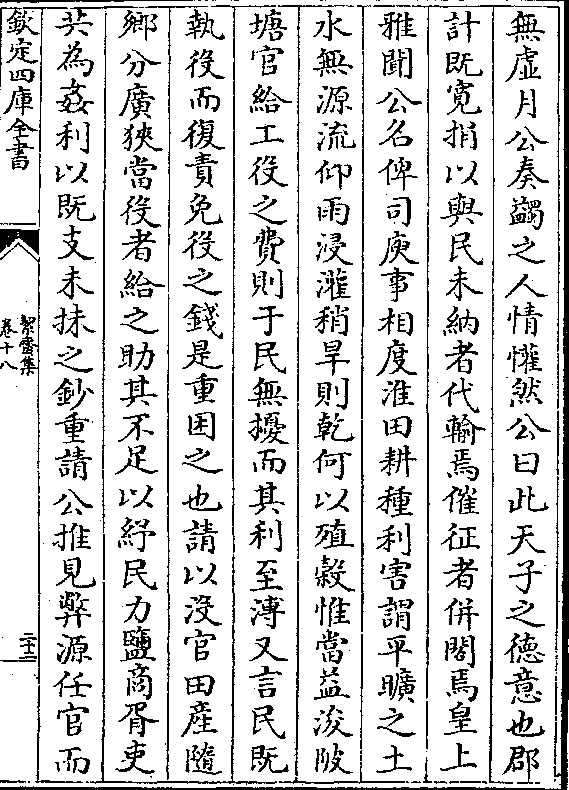 無虚月公奏蠲之人情懽然公曰此天子之徳意也郡
計既寛捐以與民未納者代輸焉催征者併閣焉皇上
雅聞公名俾司庾事相度淮田耕種利害謂平曠之土
水無源流仰雨浸灌稍旱則乾何以殖穀惟當益浚陂
塘官給工役之費則于民無擾而其利至溥又言民既
執役而復責免役之錢是重困之也請以没官田産隨
鄉分廣狹當役者給之助其不足以紓民力鹽商胥吏
共為姦利以既支未抹之鈔重請公推見弊源任官而
欽定四庫全書
絜齋集
卷十八
二十二